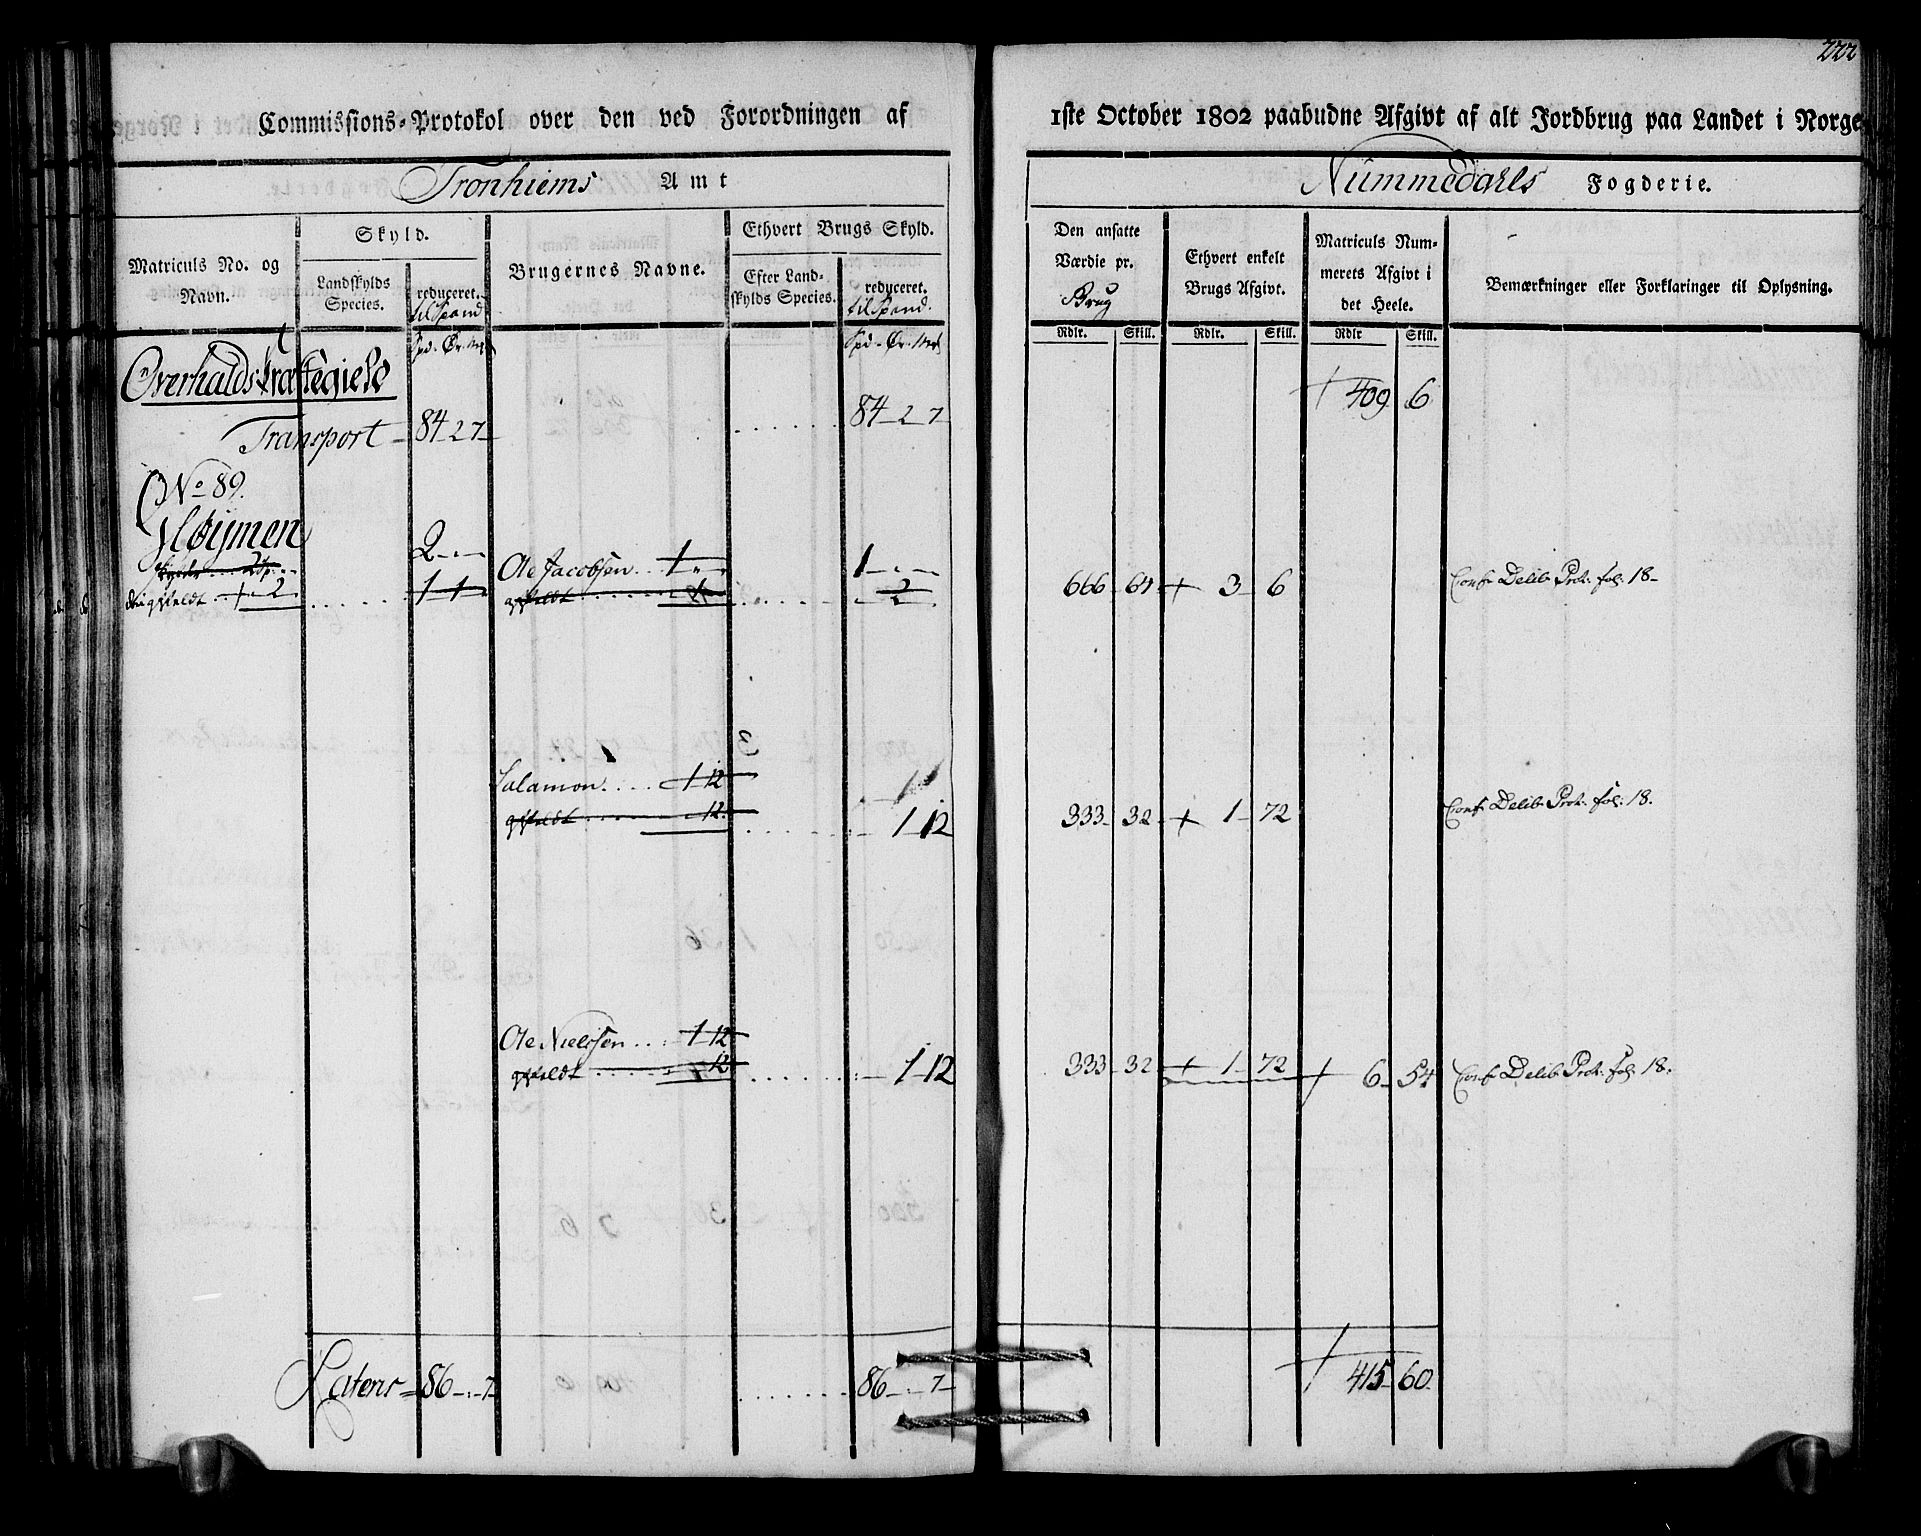 222
Commissions-Protokol over den ved Forordningen af 1ste October 1802 paabudne Afgivt af alt Jordbrug paa Landet i Norge
Tronhiems Amt
Nummedahls Fogderie.
Matriculs No. og Navn.
Skyld.
Landskylds Species.
reduceret. til Spand
Brugernes Navne.
Ethvert Brugs Skyld.
Efter Landskylds Species.
reduceret. til Spand.
Den ansatte Værdie pr. Brug
Ethvert enkelt Brugs Afgivt.
Matriculs Nummerets Afgivt i det Heele.
Bemærkninger eller Forklaringer til Oplysning.
Spd. Ør. Mk
Spd. Ør. Mk
Rdlr. Skill. Rdlr. Skill. Rdlr Skill.
Overhalds Præstegield
409 6
Transport 84 2 7 84 - 2 7
No 89.
Høijmen 2 - " -
Ole Jacobsen 1 " 1 - " - 666 64 + 3 6 Conf. Delib. Prot. fol: 18
Salamon 1 12 1 12 333 32 + 1 72 Conf. Delib. Prot. fol: 18.
Ole Nielssen 1 12 1 12 333 32 + 1 72 + 6 54 Conf. Delib. Prot. fol: 18.
Latens 86 - : 7 86 - : 7 415 60